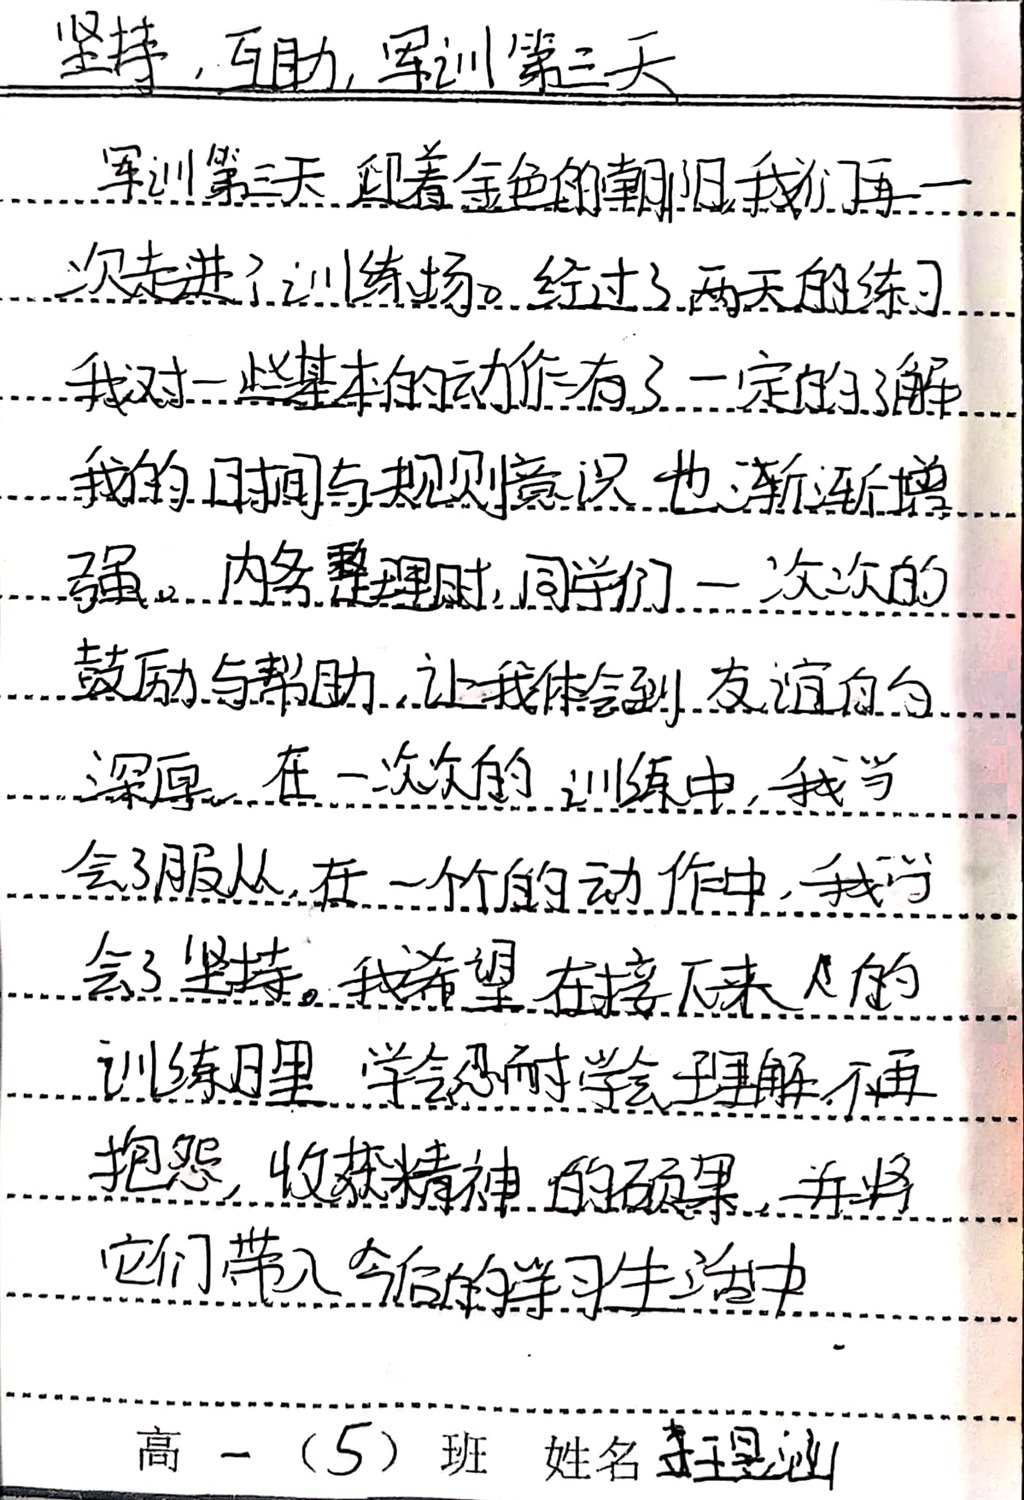 坚持,互助,军训第三天
军训第三天 迎着金色的朝阳我们再一
次走进了训练场。经过了两天的练习
我对一些基本的动作有了一定的了解
我的时间与规则意识也渐渐增
强。内务整理时,同学们一次次的
鼓励与帮助,让我体会到友谊的
深厚。在一次次的训练中,我学
会了服从,在一个个的动作中,我学
会了坚持。我希望在接下来的
训练日里 学会忍耐学会理解,不再
抱怨,收获精神的硕果,并将
它们带入今后的学习生活中
高一(5)班 姓名